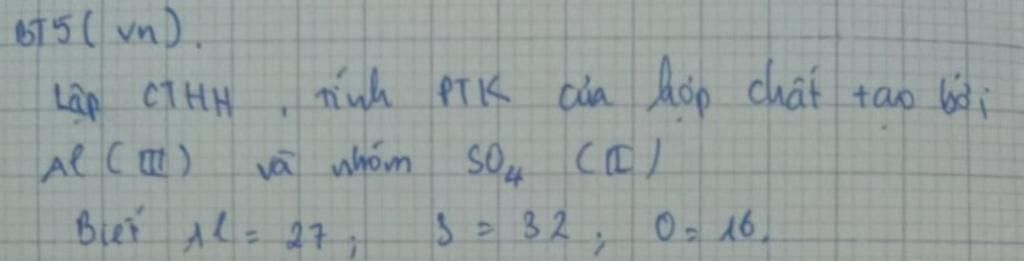 BT5 ( vn ).
Lập CTHH , tính PTK của hợp chất tạo bởi
Al ( III ) và nhóm SO₄ ( II )
Biết Al = 27 ; S = 32 ; O = 16.